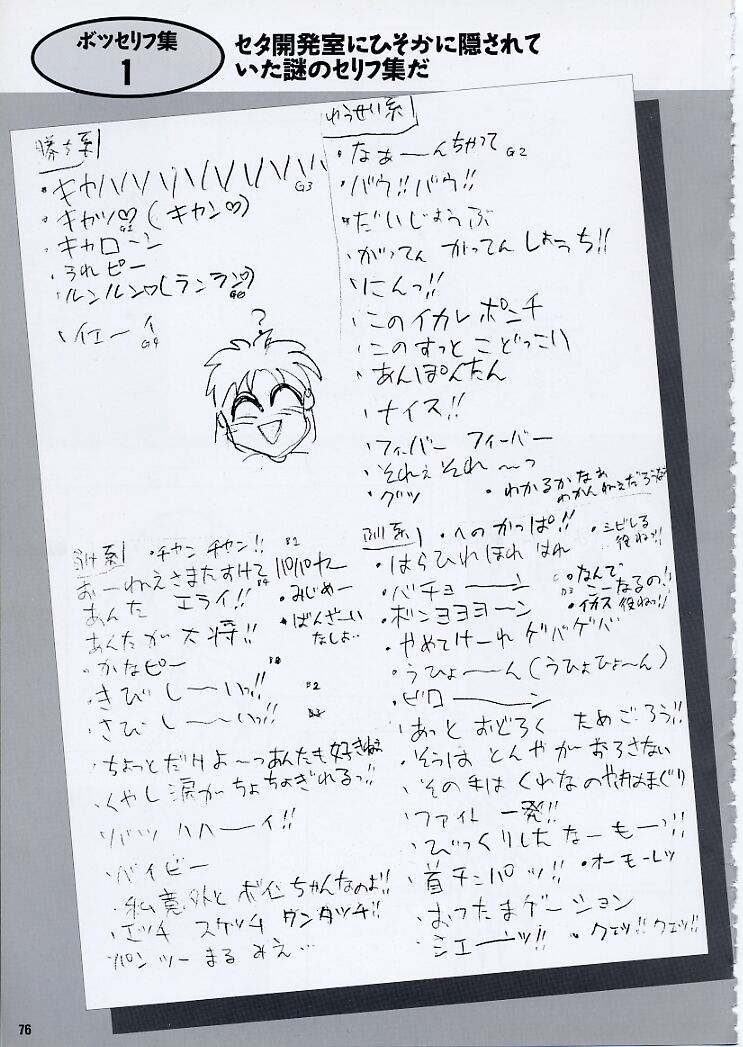 ボツセリフ集
1
セタ開発室にひそかに隠されて
いた謎のセリフ集だ
勝ち系
・キャハハハハハハハハハ G3
・キャッ♡(キャン♡)
・キャローン
・うれピー
・ルンルン♡(ランラン♡)
・イエーイ G4
?
ゆうせい系
・なぁーんちゃって G2
・バウ!!バウ!!
・だいじょうぶ
・がってん がってん しょうち!!
・にんっ!!
・このイカレ ポンチ
・このすっとこどっこい
・あんぽんたん
・ナイス!!
・フィーバー フィーバー
・それぇ それ〜っ
・グッ
・わかるかなぁ
わかんねぇだろうなぁ
負け系
・チャン チャン!! B1
おーねえさまたすけて B4
あんた エライ!!
あんたが大将!!
・かなピー
・きびしーいっ!! B2
・さびしーいっ!!
・ちょっとだけよ〜っあんたも好きねぇ
・くやし涙がちょちょぎれるっ!!
・ハハーイ!!
・バイビー
・私意外とボインちゃんなのよ!!
・エッチ スケッチ ワンタッチ!!
パンツーまるみえ…
・みじめー
・ばんざーい
なしよ…
・へのかっぱ!!
・シビレる
役ねっ!!
・はらひれほれはれ
・バチョーーン
・ボンヨヨヨーン
・やめてけーれ ゲバゲバ
・うひょーーん(うひょひょーん)
・ビローーン
・なんで
こーなるの!!
・イカス 役ねっ!!
・あっと おどろく ためごろう!!
・そうは とんやが おろさない
・その手は くわなの 焼はまぐり
・ファイト 一発!!
・びっくりしたなーもーっ!!
・首チンパッ!!
・オーモーレツ
・おったまゲーション
・シエーーッ!!
・クェッ!!クェッ!!
76